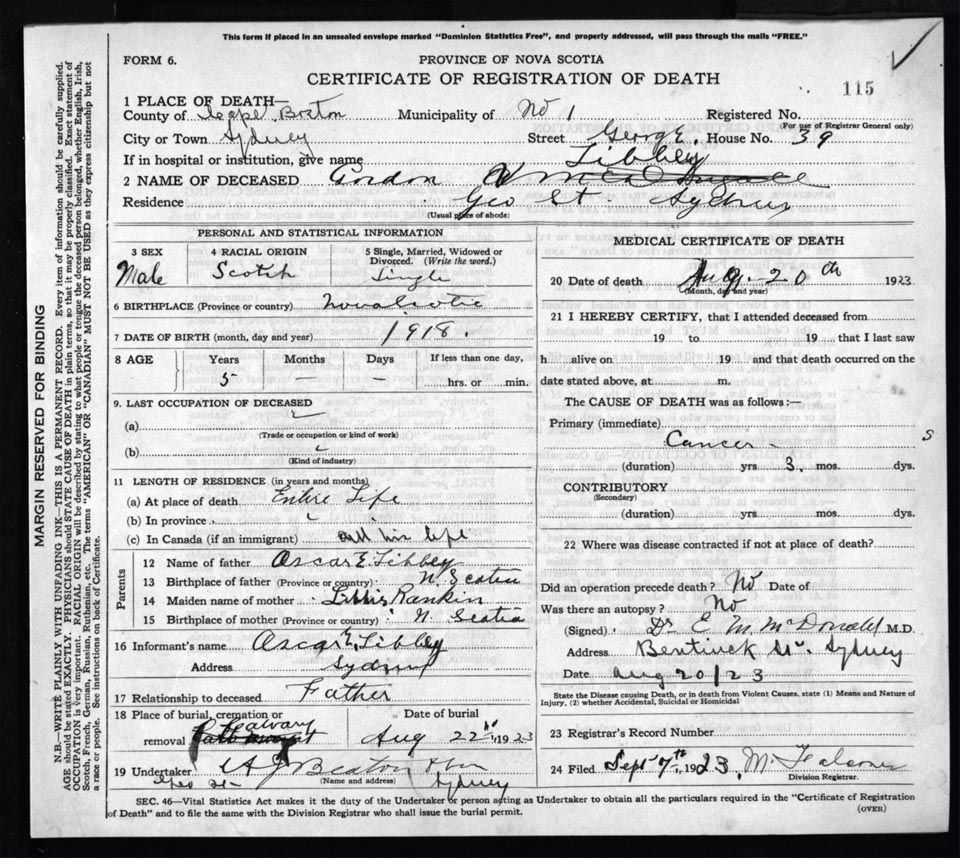 This form if placed in an unsealed envelope marked "Dominion Statistics Free", and properly addressed, will pass through the mails "FREE."
FORM 6.
PROVINCE OF NOVA SCOTIA
CERTIFICATE OF REGISTRATION OF DEATH
115
1 PLACE OF DEATH—
County of Cape Breton Municipality of No 1 Registered No.
(For use of Registrar General only)
City or Town Sydney Street George House No. 39
If in hospital or institution, give name
2 NAME OF DECEASED Gordon Libbey
Residence Geo St. Sydney
(Usual place of abode)
PERSONAL AND STATISTICAL INFORMATION
3 SEX 4 RACIAL ORIGIN 5 Single, Married, Widowed or Divorced. (Write the word.)
Male Scotch Single
6 BIRTHPLACE (Province or country) Nova Scotia
7 DATE OF BIRTH (month, day and year) 1918.
8 AGE Years Months Days If less than one day,
5 — — hrs. or min.
9. LAST OCCUPATION OF DECEASED
(a)
(Trade or occupation or kind of work)
(b)
(Kind of industry)
11 LENGTH OF RESIDENCE (in years and months)
(a) At place of death Entire Life
(b) In province
(c) In Canada (if an immigrant) all his life
Parents
12 Name of father Oscar E. Libbey
13 Birthplace of father (Province or country) N. Scotia
14 Maiden name of mother Rankin
15 Birthplace of mother (Province or country) N. Scotia
16 Informant's name Oscar E. Libbey
Address Sydney
17 Relationship to deceased Father
18 Place of burial, cremation or removal Calvary
Date of burial Aug 22 1923
19 Undertaker A J Beaton
(Name and address)
Geo St. Sydney
MEDICAL CERTIFICATE OF DEATH
20 Date of death Aug. 20th 1923
(Month, day and year)
21 I HEREBY CERTIFY, that I attended deceased from
19 to 19 that I last saw
h alive on 19 and that death occurred on the
date stated above, at m.
The CAUSE OF DEATH was as follows:—
Primary (immediate)
Cancer
(duration) yrs 3. mos. dys.
CONTRIBUTORY
(Secondary)
(duration) yrs. mos. dys.
22 Where was disease contracted if not at place of death?
Did an operation precede death? No Date of
Was there an autopsy? No
(Signed) Dr E M McDonald M.D.
Address Bentinck St. Sydney
Date Aug 20/23
State the Disease causing Death, or in death from Violent Causes, state (1) Means and Nature of
Injury, (2) whether Accidental, Suicidal or Homicidal
23 Registrar's Record Number
24 Filed Sept 7th, 1923,
Division Registrar.
SEC. 46—Vital Statistics Act makes it the duty of the Undertaker or person acting as Undertaker to obtain all the particulars required in the "Certificate of Registration
of Death" and to file the same with the Division Registrar who shall issue the burial permit.
(OVER)
MARGIN RESERVED FOR BINDING
N.B.—WRITE PLAINLY WITH UNFADING INK—THIS IS A PERMANENT RECORD. Every item of information should be carefully supplied.
AGE should be stated EXACTLY. PHYSICIANS should STATE CAUSE OF DEATH in plain terms, so that it may be properly classified. Exact statement of
OCCUPATION is very important. RACIAL ORIGIN will be described by stating to what people or tongue the deceased person belonged, whether English, Irish,
Scotch, French, German, Russian, Ruthenian, etc. The terms "AMERICAN" or "CANADIAN" MUST NOT BE USED as they express citizenship but not
a race or people. See instructions on back of Certificate.